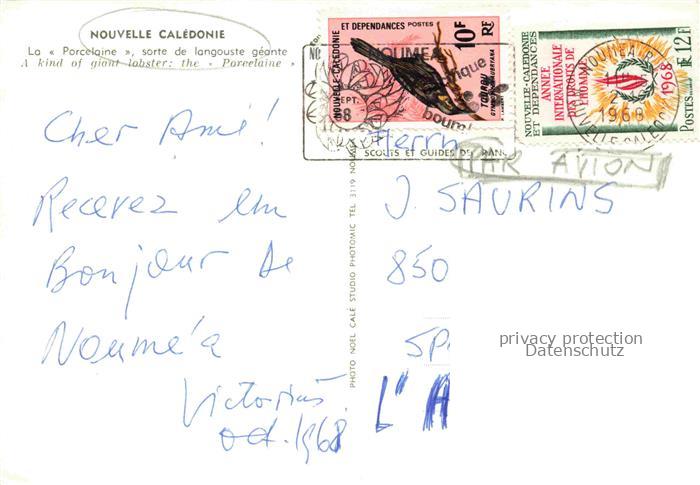 NOUVELLE CALÉDONIE
La « Porcelaine », sorte de langouste géante
A kind of giant lobster: the « Porcelaine »
Cher Ami!
Recevez un
Bonjour de
Nouméa
Victorius
oct. 1968
PHOTO NOEL CALÉ STUDIO PHOTOMIC TEL. 3119 NOUMÉA
NOUVELLE-CALÉDONIE
ET DÉPENDANCES POSTES
10F
RF
TOUROU
NOUMEA
SEPT.
SCOUTS ET GUIDES DE FRANCE
NOUVELLE-CALÉDONIE
ET DÉPENDANCES
ANNÉE
INTERNATIONALE
DES DROITS DE
L'HOMME
1968
POSTES
RF 12F
NOUMEA R.P.
1968
NOUVELLE-CALEDONIE
PAR AVION
Herrn
J. SAURINS
850
SP
L'A
privacy protection
Datenschutz